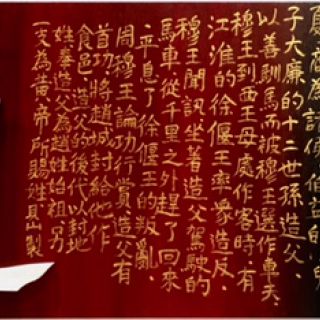 夏、商為諸侯伯益的
子大廉的十二世孫造父,
以善馴馬而被穆王選作車夫,
穆王到西王母處作客時,有
江淮的徐偃王率衆造反,
穆王聞訊,坐著造父駕駛的
馬車,從千里之外趕了回來
平息了徐偃王的叛亂,
周穆王論功行賞,造父有
首功,將趙城封給他作
食邑,造父的後代以封地
姓奉造父為趙姓始祖,另
一支為黃帝所賜姓